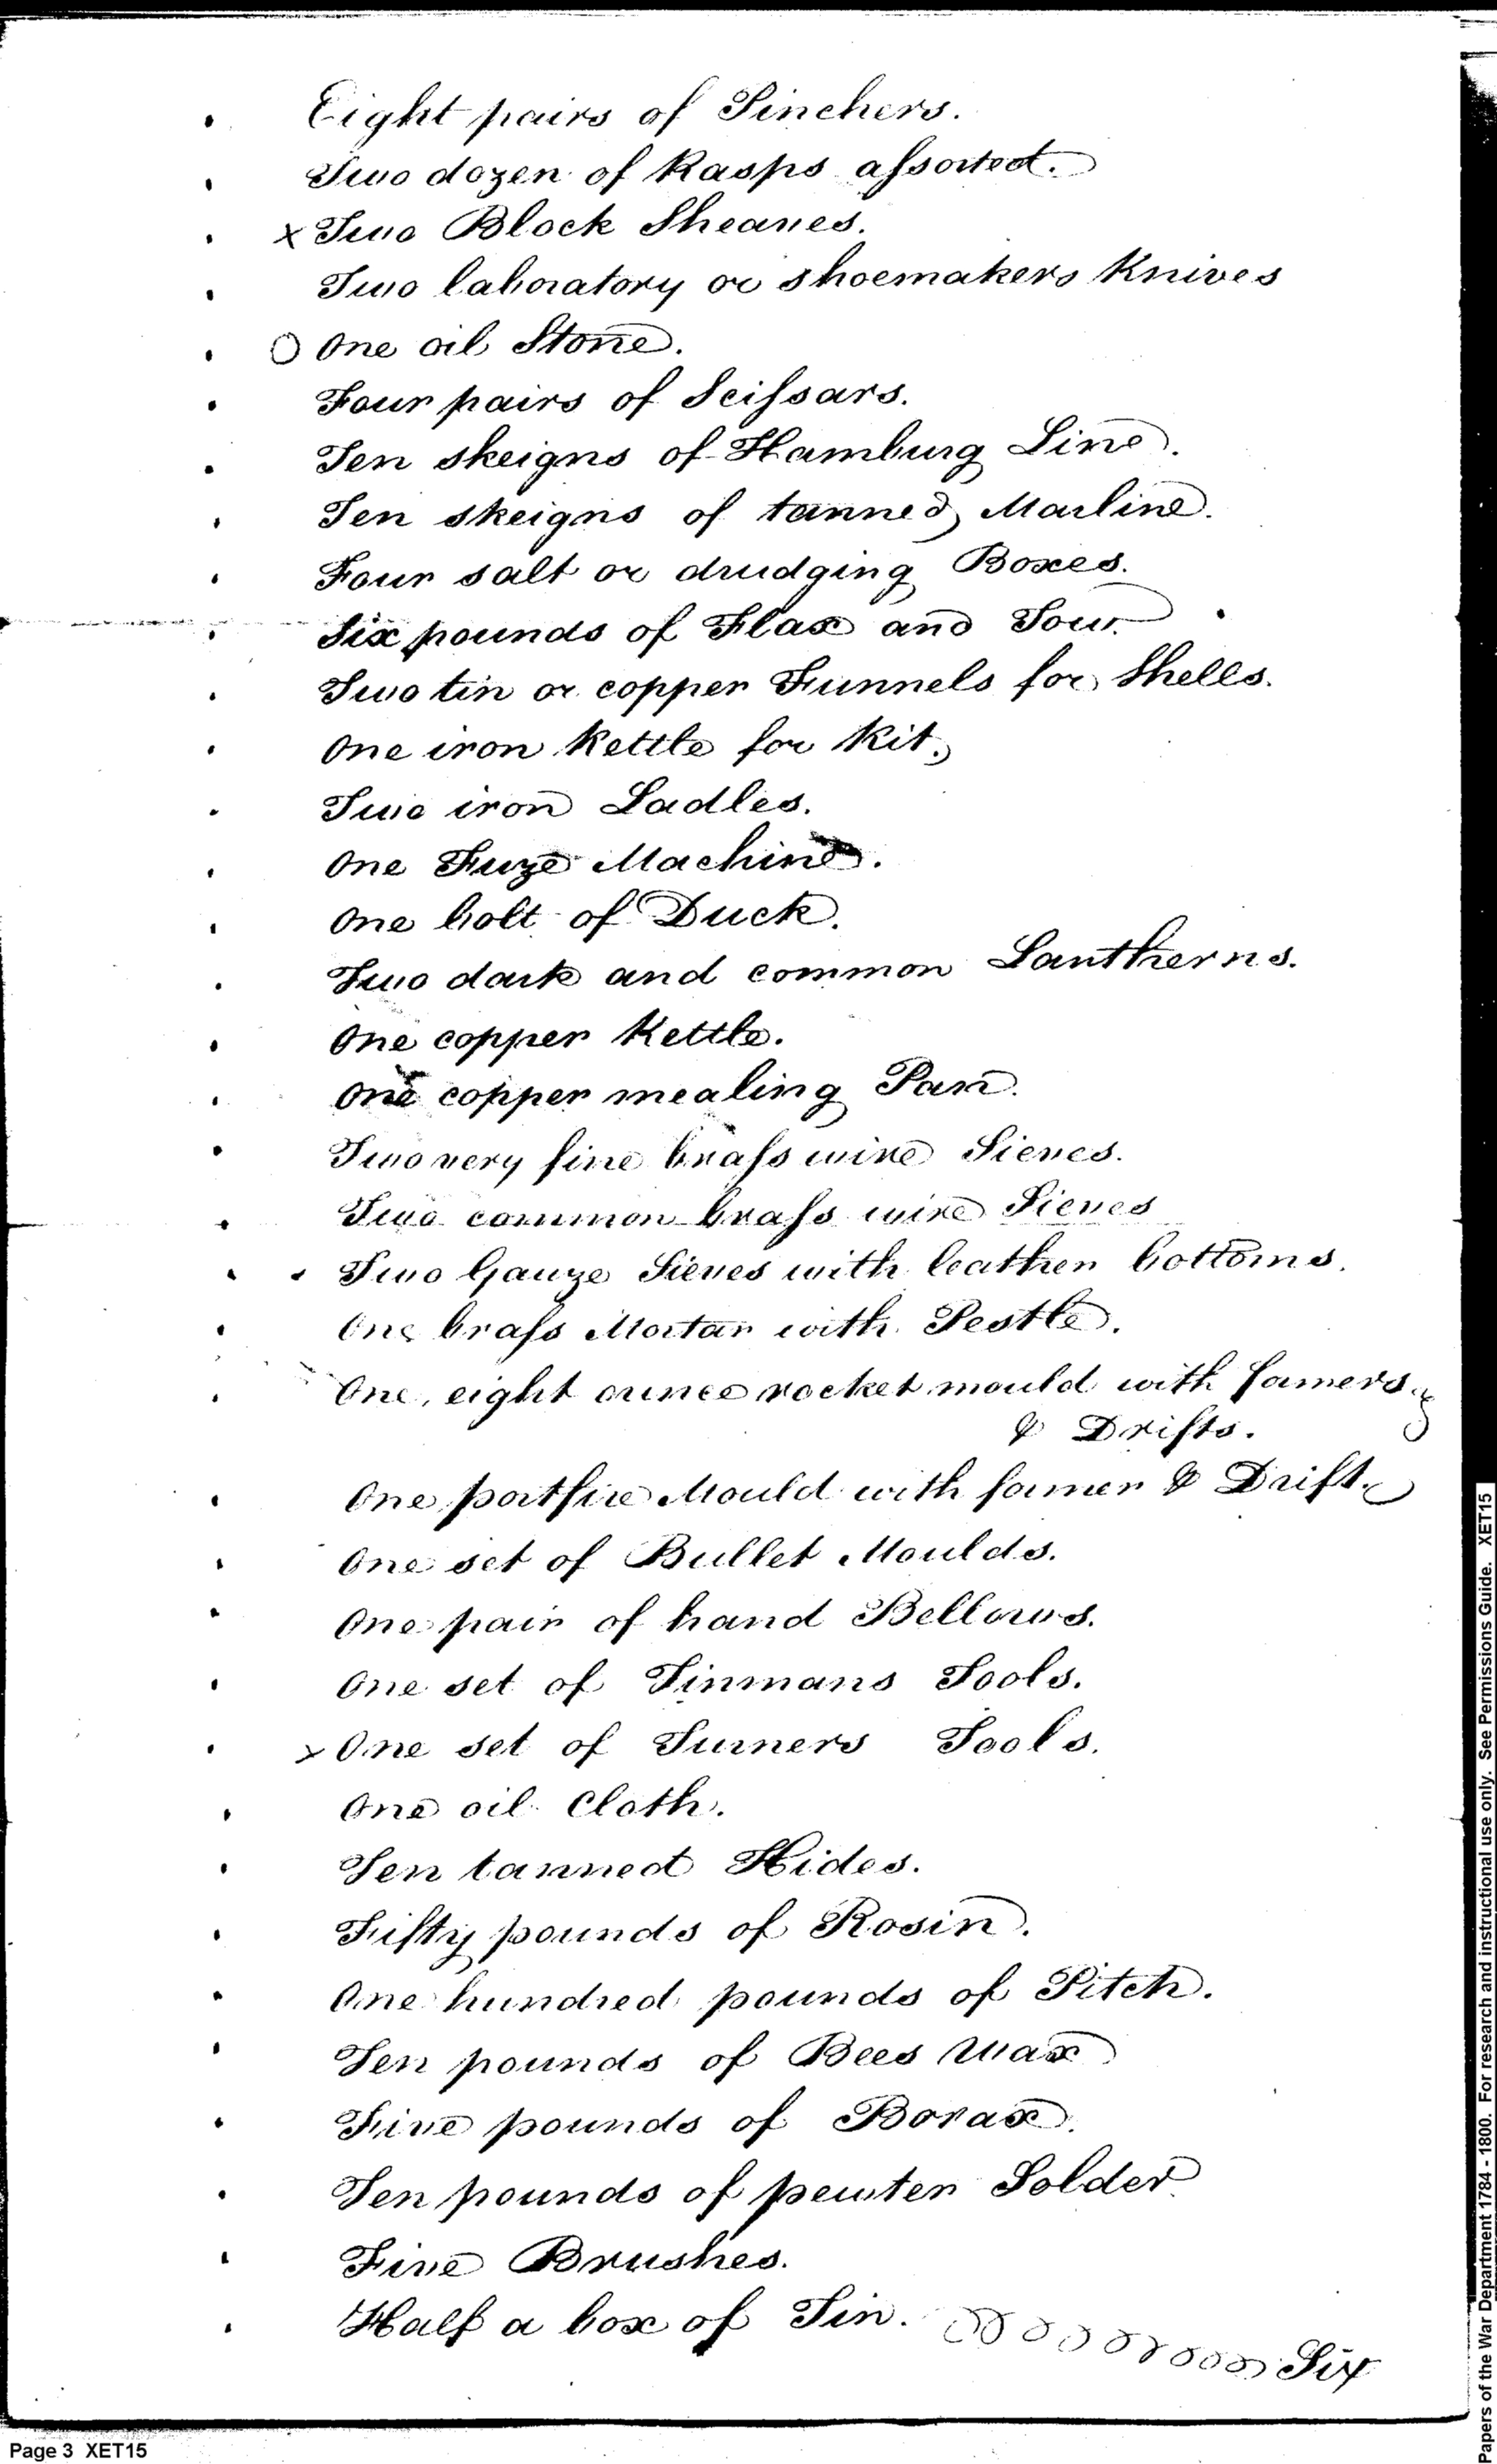 Eight pairs of Pinchers.
Two dozen of Rasps assorted.
x Two Block Sheaves.
Two laboratory or shoemakers Knives
O One oil Stone.
Four pairs of Scissars.
Ten skeigns of Hamburg Line.
Ten skeigns of tanned Marline.
Four salt or drudging Boxes.
Six pounds of Flax and Tow.
Two tin or copper Funnels for Shells.
One iron Kettle for Kit.
Two iron Ladles.
One Fuze Machine.
One bolt of Duck.
Two dark and common Lantherns.
One copper Kettle.
One copper mealing Pan.
Two very fine brass wire Sieves.
Two common brass wire Sieves
Two Gauze Sieves with leather bottoms.
One brass Mortar with Pestle.
One, eight ounce rocket mould with formers
& Drifts.
One portfire Mould with former & Drift.
One set of Bullet Moulds.
One pair of hand Bellows.
One set of Tinmans Tools.
x One set of Turners Tools.
One oil Cloth.
Ten tanned Hides.
Fifty pounds of Rosin.
One hundred pounds of Pitch.
Ten pounds of Bees Wax
Five pounds of Borax.
Ten pounds of pewter Solder
Five Brushes.
Half a box of Tin.
Six
Page 3 XET15
Papers of the War Department 1784 - 1800. For research and instructional use only. See Permissions Guide. XET15